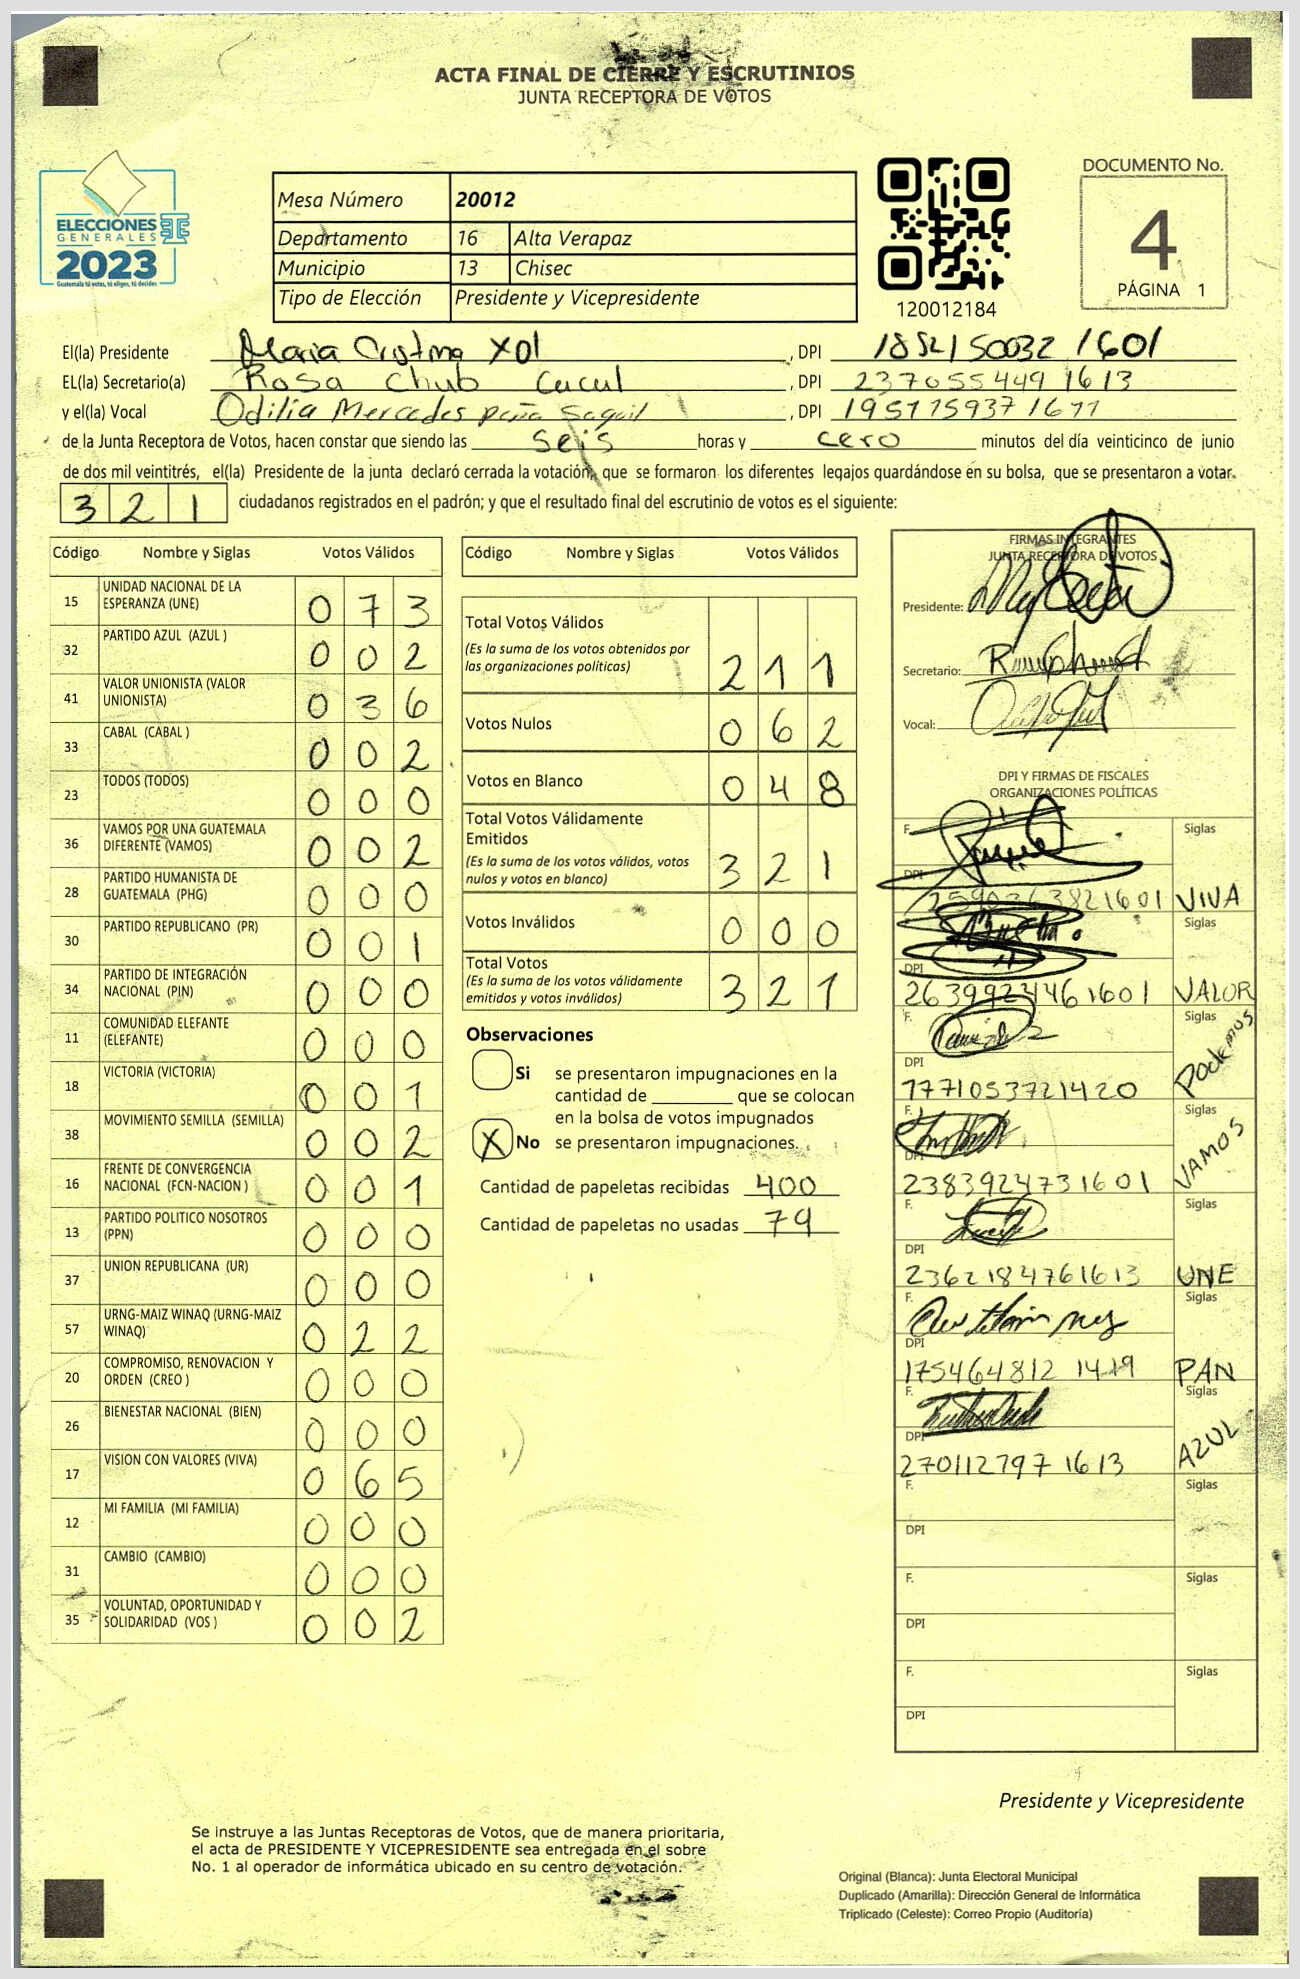 ACTA FINAL DE CIERRE Y ESCRUTINIOS
JUNTA RECEPTORA DE VOTOS
ELECCIONES
GENERALES
2023
Guatemala tú votas, tú eliges, tú decides
Mesa Número 20012
Departamento 16 Alta Verapaz
Municipio 13 Chisec
Tipo de Elección Presidente y Vicepresidente
120012184
DOCUMENTO No.
4
PÁGINA 1
El(la) Presidente Maria Cristina Xol, DPI 1852150032 1601
EL(la) Secretario(a) Rosa Chub Cucul, DPI 237055449 1613
y el(la) Vocal Odilia Mercedes Peña Saquil, DPI
de la Junta Receptora de Votos, hacen constar que siendo las seis horas y cero minutos del día veinticinco de junio
de dos mil veintitrés, el(la) Presidente de la junta declaró cerrada la votación, que se formaron los diferentes legajos guardándose en su bolsa, que se presentaron a votar.
321 ciudadanos registrados en el padrón; y que el resultado final del escrutinio de votos es el siguiente:
Código Nombre y Siglas Votos Válidos
15 UNIDAD NACIONAL DE LA ESPERANZA (UNE) 073
32 PARTIDO AZUL (AZUL ) 002
41 VALOR UNIONISTA (VALOR UNIONISTA) 036
33 CABAL (CABAL ) 002
23 TODOS (TODOS) 000
36 VAMOS POR UNA GUATEMALA DIFERENTE (VAMOS) 002
28 PARTIDO HUMANISTA DE GUATEMALA (PHG) 000
30 PARTIDO REPUBLICANO (PR) 001
34 PARTIDO DE INTEGRACIÓN NACIONAL (PIN) 000
11 COMUNIDAD ELEFANTE (ELEFANTE) 000
18 VICTORIA (VICTORIA) 001
38 MOVIMIENTO SEMILLA (SEMILLA) 002
16 FRENTE DE CONVERGENCIA NACIONAL (FCN-NACION ) 001
13 PARTIDO POLITICO NOSOTROS (PPN) 000
37 UNION REPUBLICANA (UR) 000
57 URNG-MAIZ WINAQ (URNG-MAIZ WINAQ) 022
20 COMPROMISO, RENOVACION Y ORDEN (CREO ) 000
26 BIENESTAR NACIONAL (BIEN) 000
17 VISION CON VALORES (VIVA) 065
12 MI FAMILIA (MI FAMILIA) 000
31 CAMBIO (CAMBIO) 000
35 VOLUNTAD, OPORTUNIDAD Y SOLIDARIDAD (VOS ) 002
Código Nombre y Siglas Votos Válidos
Total Votos Válidos 211
(Es la suma de los votos obtenidos por
las organizaciones políticas)
Votos Nulos 062
Votos en Blanco 048
Total Votos Válidamente
Emitidos 321
(Es la suma de los votos válidos, votos
nulos y votos en blanco)
Votos Inválidos 000
Total Votos 321
(Es la suma de los votos válidamente
emitidos y votos inválidos)
Observaciones
Si se presentaron impugnaciones en la
cantidad de ________ que se colocan
en la bolsa de votos impugnados
X No se presentaron impugnaciones.
Cantidad de papeletas recibidas 400
Cantidad de papeletas no usadas 79
FIRMAS INTEGRANTES
JUNTA RECEPTORA DE VOTOS
Presidente:
Secretario:
Vocal:
DPI Y FIRMAS DE FISCALES
ORGANIZACIONES POLÍTICAS
F. Siglas
DPI 2590263821601 VIVA
Siglas
DPI 2639924461601 VALOR
F. Siglas
DPI 1771053721420 Podemos
F. Siglas
DPI 2383924731601 VAMOS
F. Siglas
DPI 2362184761613 UNE
F. Siglas
DPI 175464812 1419 PAN
F. Siglas
DPI 270112797 1613 AZUL
F. Siglas
DPI
F. Siglas
DPI
F. Siglas
DPI
Presidente y Vicepresidente
Se instruye a las Juntas Receptoras de Votos, que de manera prioritaria,
el acta de PRESIDENTE Y VICEPRESIDENTE sea entregada en el sobre
No. 1 al operador de informática ubicado en su centro de votación.
Original (Blanca): Junta Electoral Municipal
Duplicado (Amarilla): Dirección General de Informática
Triplicado (Celeste): Correo Propio (Auditoría)